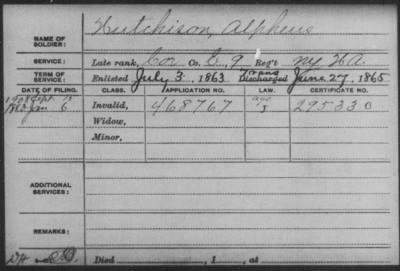 NAME OF SOLDIER: Hutchison, Alpheus
SERVICE: Late rank, Cor Co. C, 9 Reg't NY HA.
TERM OF SERVICE: Enlisted July 3, 1863 Discharged June 27, 1865
DATE OF FILING. CLASS. APPLICATION NO. LAW. CERTIFICATE NO.
Invalid, 468767 295330
Jan 6
Widow,
Minor,
ADDITIONAL SERVICES:
REMARKS:
Died , 1 , at